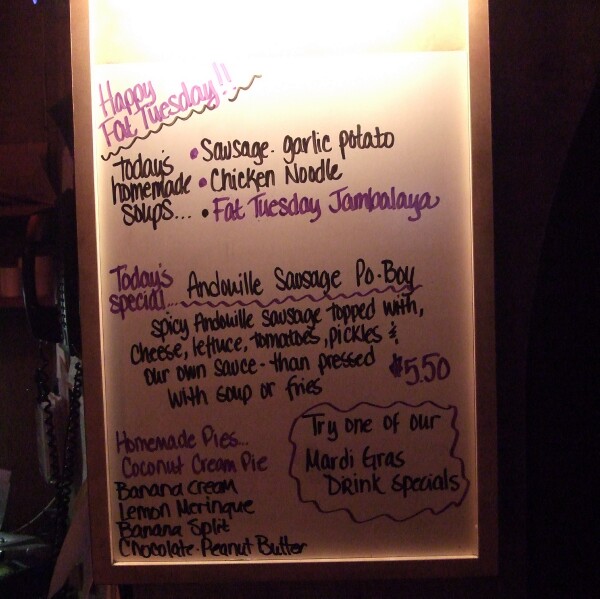 Happy
Fat Tuesday!!
Today's
homemade
soups...
• Sausage. garlic potato
• Chicken Noodle
• Fat Tuesday Jambalaya
Today's
special...
Andouille Sausage Po-Boy
spicy Andouille sausage topped with,
cheese, lettuce, tomatoes, pickles &
our own sauce - than pressed
with soup or fries
$5.50
Homemade Pies...
Coconut Cream Pie
Banana Cream
Lemon Meringue
Banana Split
Chocolate-Peanut Butter
Try one of our
Mardi Gras
Drink specials